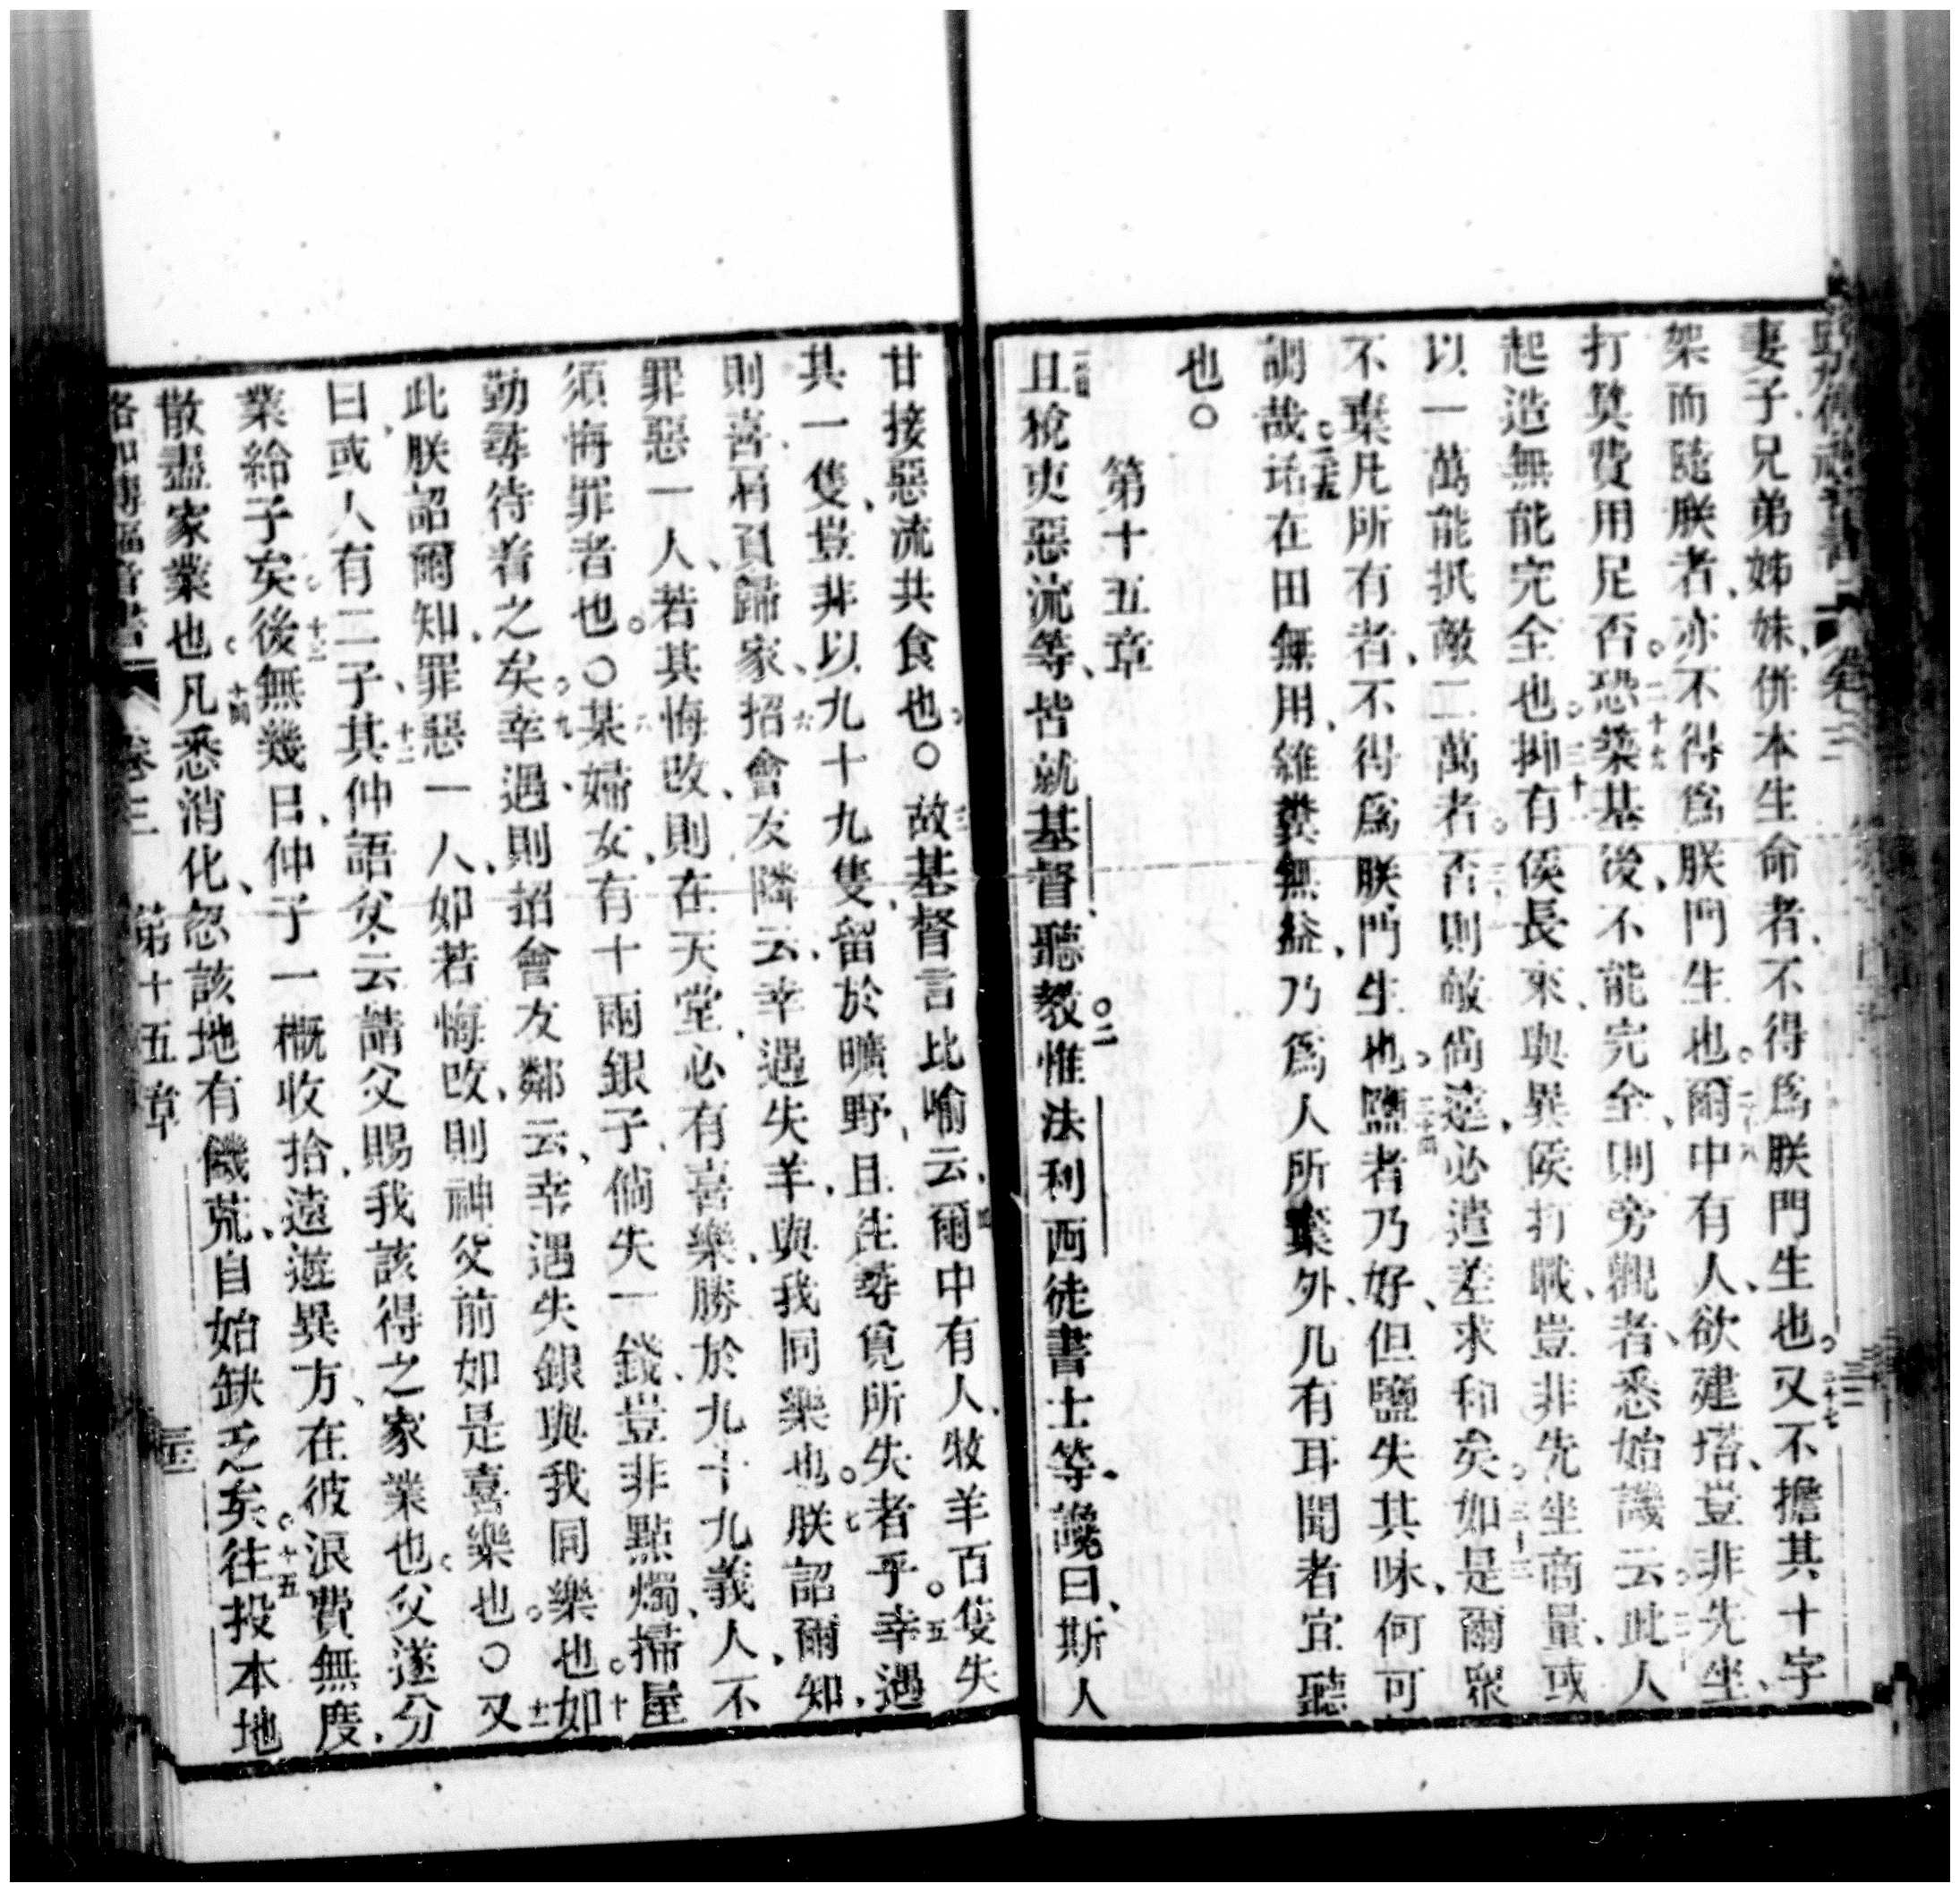 妻子兄弟姊妹、併本生命者、不得爲朕門生也。二十七又不擔其十字
架而隨朕者、亦不得爲朕門生也。二十八爾中有人、欲建塔、豈非先坐、
打筭費用足否。二十九恐築基後、不能完全、則旁觀者、悉始譏云。三十此人
起造無能完全也。三十一抑有侯長來、與異侯打戰、豈非先坐商量、或
以一萬能抵敵二萬者。三十二否則敵尚遠、必遣差求和矣。三十三如是爾眾
不棄凡所有者、不得爲朕門生也。三十四鹽者乃好、但鹽失其味、何可
調哉。三十五話在田無用、雜糞無益、乃爲人所棄外、凡有耳聞者宜聽
也○
第十五章
一節且稅吏惡流等、皆就基督、聽敎。二惟法利西徒書士等、讒曰、斯人
甘接惡流共食也。○三故基督言比喻云、四爾中有人、牧羊百隻失
其一隻、豈非以九十九隻、留於曠野、且往尋覓所失者乎。五幸遇
則喜肩負歸家、六招會友隣云、幸遇失羊、與我同樂也。七朕詔爾知、
罪惡一人、若其悔改、則在天堂、必有喜樂、勝於九十九義人、不
須悔罪者也。○八某婦女、有十兩銀子、倘失一錢、豈非點燭、掃屋
勤尋待着之矣。九幸遇、則招會友鄰云、幸遇失銀與我同樂也。十如
此朕詔爾知、罪惡一人、如若悔改、則神父前如是喜樂也。○十一又
曰、或人有二子、十二其仲語父云、請父賜我該得之家業也。父遂分
業給子矣。十三後無幾日、仲子一概收拾、遠遊異方、在彼浪費無度、
散盡家業也。十四凡悉消化、忽該地有饑荒、自始缺乏矣。十五往投本地
卷三 第十五章